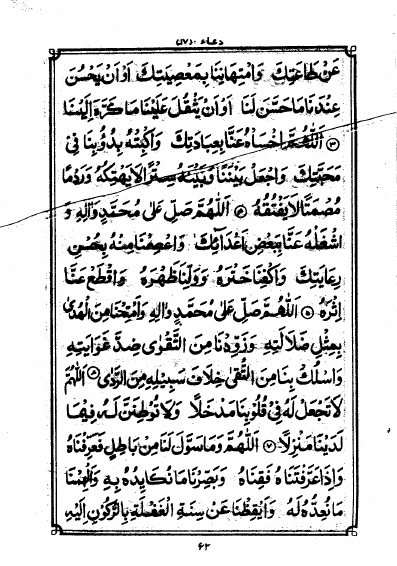 دعاء (١٧)
عَنْ طَاعَتِكَ وَامْتِهَانِنَا بِمَعْصِيَتِكَ اَوْ اَنْ يَحْسُنَ
عِنْدَنَا مَا حَسَّنَ لَنَا اَوْ اَنْ يَثْقُلَ عَلَيْنَا مَا كَرَّهَ اِلَيْنَا
(٣) اَللّٰهُمَّ اخْسَأْهُ عَنَّا بِعِبَادَتِكَ وَاكْبِتْهُ بِدُؤُبِنَا فِي
مَحَبَّتِكَ وَاجْعَلْ بَيْنَنَا وَبَيْنَهُ سِتْرًا لَا يَهْتِكُهُ وَرَدْمًا
مُصْمَتًا لَا يَفْتُقُهُ (٤) اَللّٰهُمَّ صَلِّ عَلٰى مُحَمَّدٍ وَاٰلِهِ وَ
اشْغَلْهُ عَنَّا بِبَعْضِ اَعْدَائِكَ وَاعْصِمْنَا مِنْهُ بِحُسْنِ
رِعَايَتِكَ وَاكْفِنَا خَتْرَهُ وَوَلِّنَا ظَهْرَهُ وَاقْطَعْ عَنَّا
اِثْرَهُ (٥) اَللّٰهُمَّ صَلِّ عَلٰى مُحَمَّدٍ وَاٰلِهِ وَاَمْتِعْنَا مِنَ الْهُدٰى
بِمِثْلِ ضَلَالَتِهِ وَزَوِّدْنَا مِنَ التَّقْوٰى ضِدَّ غَوَايَتِهِ
وَاسْلُكْ بِنَا مِنَ التُّقٰى خِلَافَ سَبِيْلِهِ مِنَ الرَّدٰى اَللّٰهُمَّ
لَا تَجْعَلْ لَهُ فِي قُلُوْبِنَا مَدْخَلًا وَلَا تُوْطِنَنَّ لَهُ فِيْمَا
لَدَيْنَا مَنْزِلًا (٧) اَللّٰهُمَّ وَمَا سَوَّلَ لَنَا مِنْ بَاطِلٍ فَعَرِّفْنَاهُ
وَاِذَا عَرَّفْتَنَاهُ فَقِنَاهُ وَبَصِّرْنَا مَا نُكَايِدُهُ بِهِ وَاَلْهِمْنَا
مَا نُعِدُّهُ لَهُ وَاَيْقِظْنَا عَنْ سِنَةِ الْغَفْلَةِ بِالرُّكُوْنِ اِلَيْهِ
٦٢